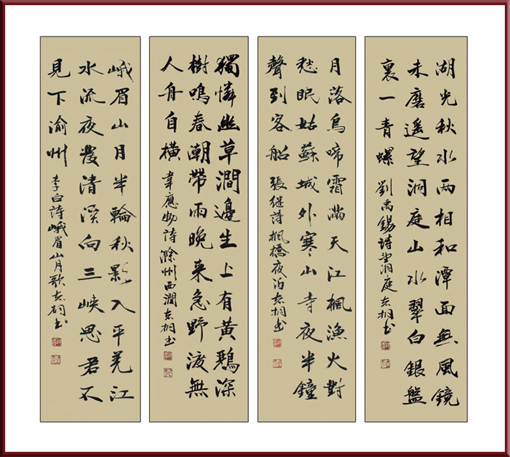 湖光秋水兩相和潭面無風鏡
未磨遙望洞庭山水翠白銀盤
裏一青螺 劉禹錫詩望洞庭 桐书
月落烏啼霜滿天江楓漁火對
愁眠姑蘇城外寒山寺夜半鐘
聲到客船 張继詩楓橋夜泊 桐书
獨憐幽草澗邊生上有黃鸝深
樹鳴春潮帶雨晚来急野渡無
人舟自橫 韋應物詩滁州西澗 桐书
峨眉山月半輪秋影入平羌江
水流夜發清溪向三峽思君不
見下渝州 李白詩峨眉山月歌 桐书